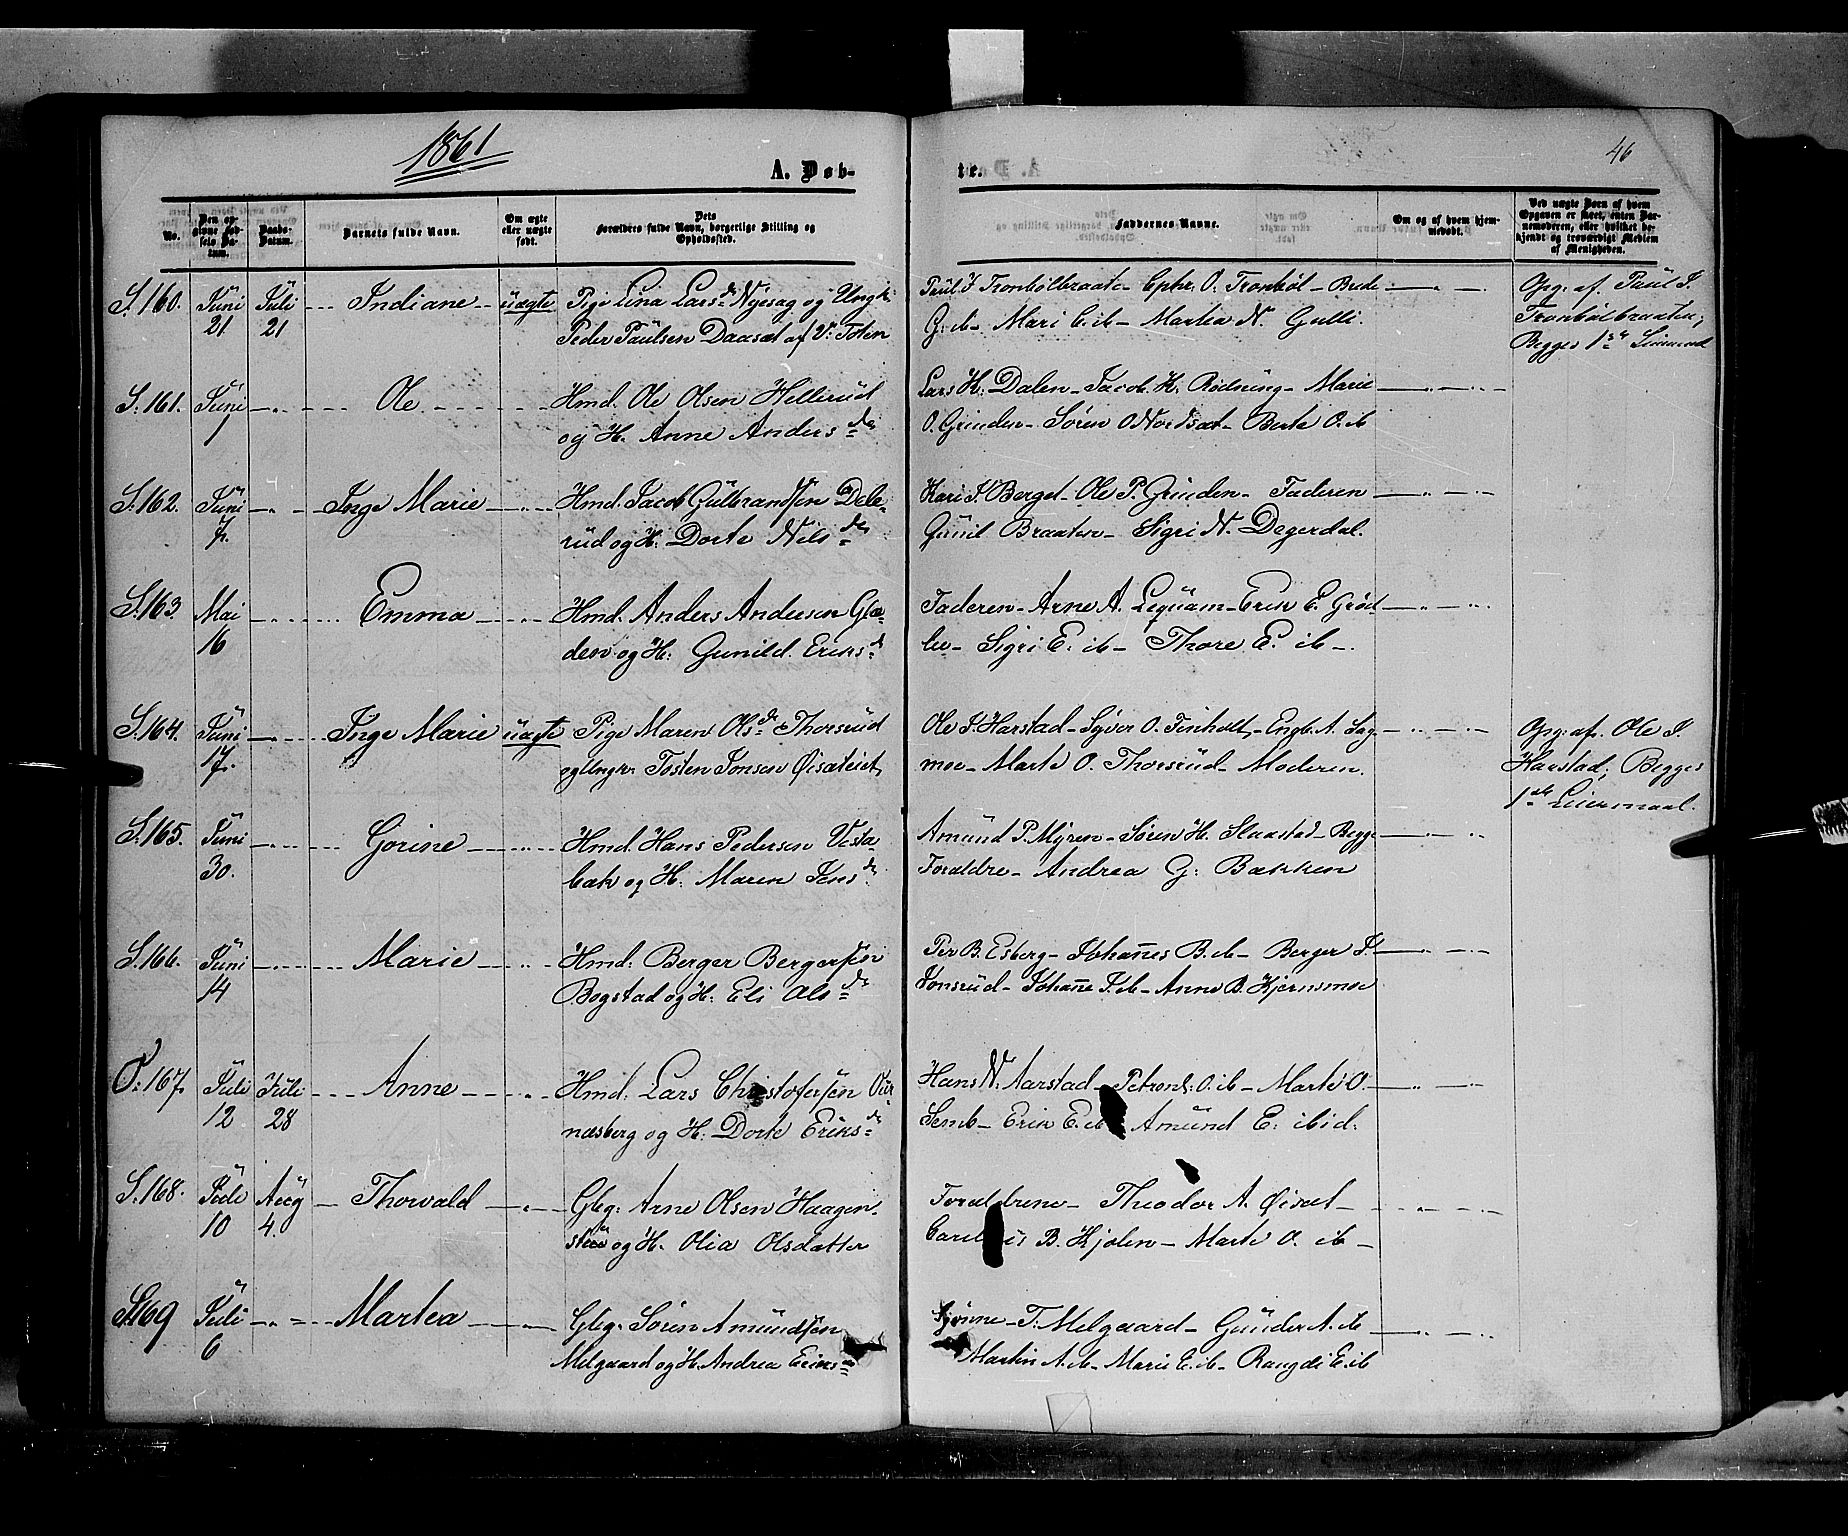 1861
46
A. Døb-
te.
No.
Den opgivne Fødsels Datum.
Daabs-Datum.
Barnets fulde Navn.
Om ægte eller uægte født.
Dets Forældres fulde Navn, borgerlige Stilling og Opholdssted.
Faddernes Navne.
Om og af hvem hjemmedøbt.
Ved uægte Børn af hvem Opgaven er skeet, enten Barnemoderen, eller hvilket bekjendt og troværdigt Medlem af Menigheden.
S. 160. Juni 21 Juli 21 Indiane uægte Pige Lina Larsdr Nyesag og Ungk.
Peder Paulsen Daasæt af V. Toten
Paul J. Tronbølbraate - Ephr. O. Tronbøl - Berte
G. ib - Mari C. ib - Martea N. Gulli.
Opg. af. Paul J.
Tronbølbraaten;
Begges 1ste
S. 161. Juni 1 Ole Hmd. Ole Olsen Hellerud
og H. Anne Andersdr
Lars H. Dalen - Jacob H. Rødning - Marie
O. Grinden - Søren O Nordsæt - Berte O. ib
S. 162. Juni 7. Inge Marie Hmd. Jacob Gulbrandsen Dele-
rud og H. Dorte Nilsdr
Kari J. Berget - Ole P. Grinden - Faderen
Gunil Braaten - Sigri N. Degerdal.
S. 163. Mai 16 Emma Hmd. Anders Andersen Glæ-
den og H. Gunild Eriksd
Faderen - Arne A. Lequam - Erik E. Grød
lie - Sigri E. ib - Thore E. ib -.
S. 164. Juni 17. Inge Marie uægte Pige Maren Olsdr Thorsrud
og Ungk. Tosten Jonsen Øisæteiet
Ole J. Harstad - Syver O. Finholt - Engb. A. Sag-
moe - Marte O. Thorsrud - Moderen.
Opg. af. Ole J.
Harstad; Begges
1ste Leiermaal.
S. 165. Juni 30. Gorine Hmd. Hans Pedersen Vesta-
bak og H. Maren Jensdr
Amund P. Myren - Søren H. Slaastad - Begge
Forældre - Andrea G. Bakken
S. 166. Juni 14 Marie Hmd. Berger Bergersen
Bogstad og H. Eli Olsdr
Per B. Esberg - Johannes B. ib - Berger J.
Vonsrud - Johanne J. ib - Anne B. Kjernsmoe
O: 167. Juli 12 Juli 28 Anne Hmd. Lars Christofersen Our
næsberg og H. Dorte Eriksdr
Hans N. Aarstad - Petron. O. ib - Marte O.
Semb - Erik E. ib Amund E. ibid.
S. 168. Juli 10 Aug 4. Thorvald Gbg. Arne Olsen Haagen-
og H. Olia Olsdatter
Forældrene - Theodor A. Øisæt -
B. Kjølen - Marte O. ib -
S. 169 Juli 6 Martea Gbg. Søren Amundsen
Melgaard og H. Andrea Eriksdr
T. Melgaard - Gunder A. ib
Martin A. ib - Marie E. ib - Rangdi E. ib